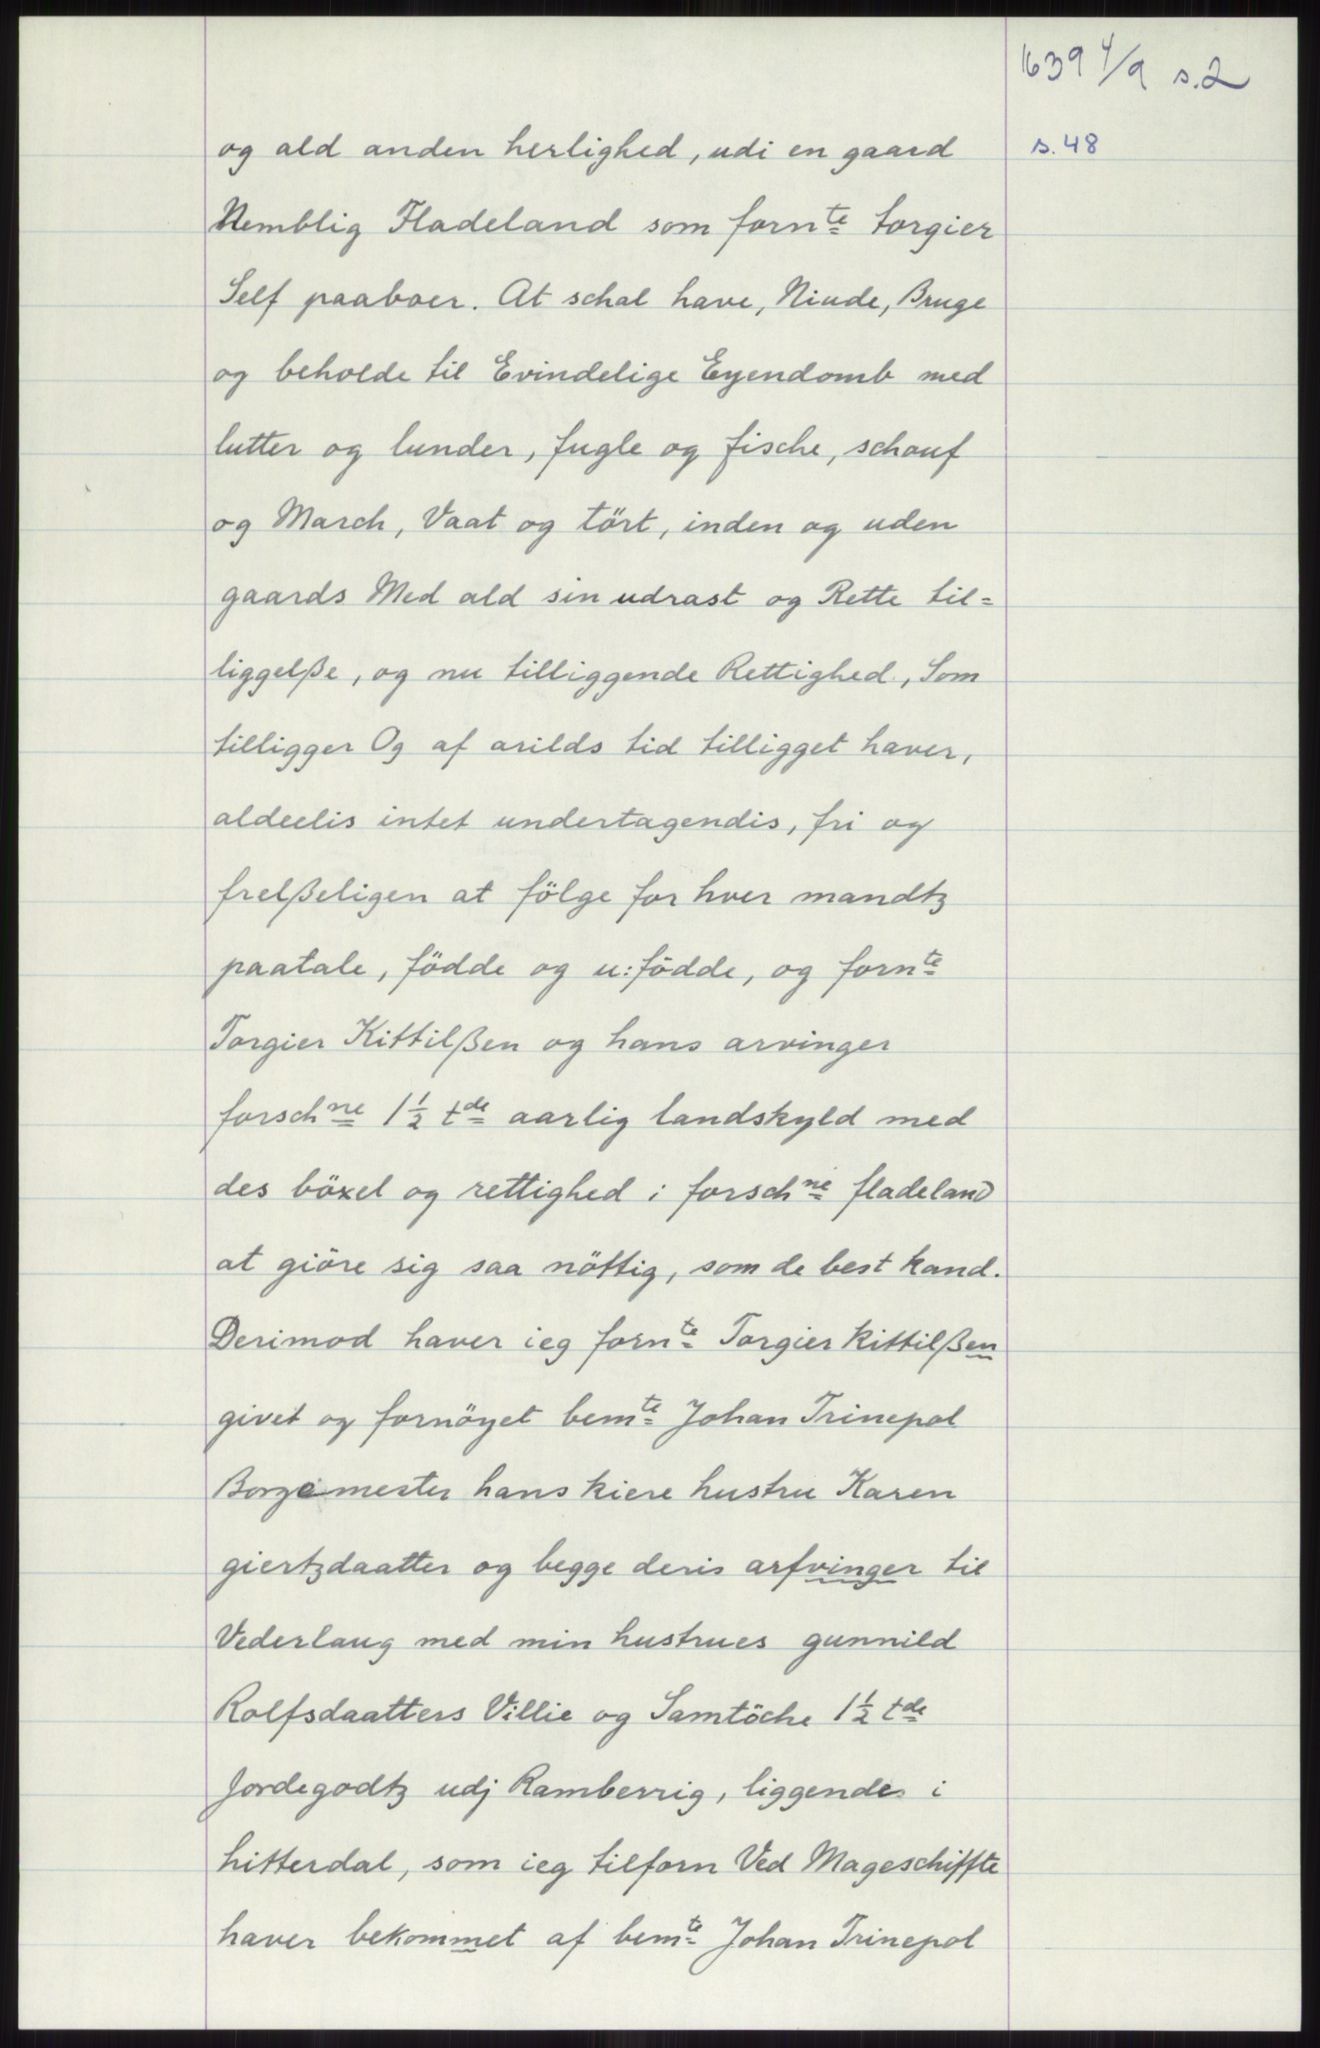 1639 4/9 s.2
s. 48
og ald anden herlighed, udi en gaard
Nemblig Fladeland som fornte torgier
Self paaboer. At schal have, Niude, Bruge
og beholde til Evindelige Eyendomb med
lutter og lunder, fugle og fische, schouf
og March, Vaat og tört, inden og uden
gaards Med ald sin udrast og Rette til=
liggelße, og nu tilliggende Rettighed, Som
tilligger Og af arilds tid tilligget haver,
aldeelis intet undertagendis, fri og
frelßeligen at fölge for hver mandtz
paatale, födde og u:födde, og fornte
Torgier Kittilßen og hans arvinger
forschne 1½ tde aarlig landskyld med
des böxel og rettighed i forschne fladeland
at giöre sig saa nöttig, som de best kand.
Derimod haver ieg fornte Torgier Kittilßen
givet og fornöyet bemte Johan Trinepol
Borgemester hans kiere hustru Karen
giertzdaatter og begge deris arfvinger til
Vederlaug med min hustrues gunnild
Rolfsdaatters Villie og Samtöche 1½ tde
Jordegodtz udj Ramberrig, liggendes i
hitterdal, som ieg tilforn Ved Mageschiffte
haver bekommet af bemte Johan Trinepol